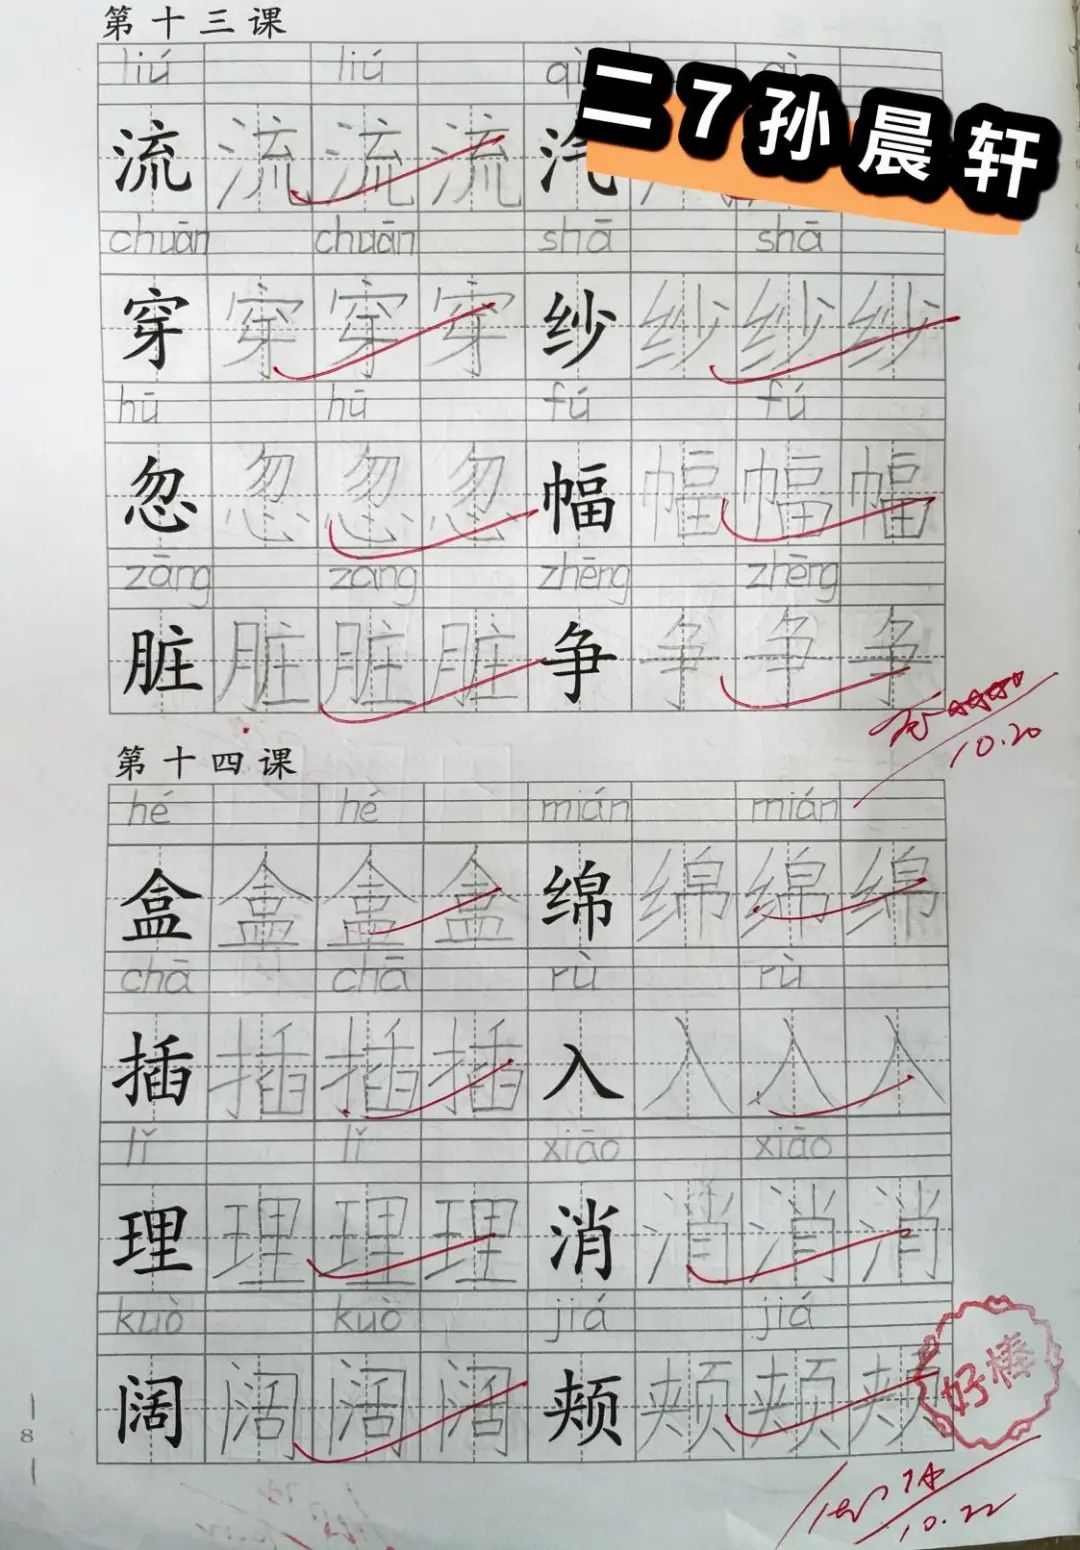 第十三课
liú liú qì qì
流 流 流 流 汽
二7孙晨轩
chuān chuān shā shā
穿 穿 穿 穿 纱 纱 纱 纱
hū hū fú fú
忽 忽 忽 忽 幅 幅 幅 幅
zāng zāng zhēng zhēng
脏 脏 脏 脏 争 争 争 争
10.20
第十四课
hé hé mián mián
盒 盒 盒 盒 绵 绵 绵 绵
chā chā rù rù
插 插 插 插 入 入 入 入
lǐ lǐ xiāo xiāo
理 理 理 理 消 消 消 消
kuò kuò jiá jiá
阔 阔 阔 阔 颊 颊 颊 颊
好棒
10.22
8